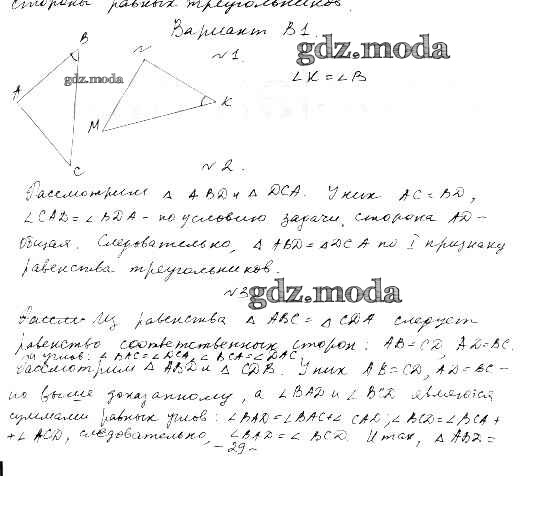 стороны равных треугольников.
Вариант В1.
gdz.moda
№1.
∠K = ∠B
B
N
gdz.moda
A
K
M
C
№2.
Рассмотрим △ ABD и △ DCA. У них AC = BD,
∠CAD = ∠BDA - по условию задачи, сторона AD -
общая. Следовательно, △ ABD = △DCA по I признаку
равенства треугольников.
№3
gdz.moda
Рассм. Из равенства △ ABC = △ CDA следует
равенство соответственных сторон: AB = CD, AD = BC.
и углов: ∠BAC = ∠DCA, ∠BCA = ∠DAC,
Рассмотрим △ ABD и △ CDB. У них AB = CD, AD = BC -
по выше доказанному, а ∠BAD и ∠BCD являются
суммами равных углов: ∠BAD = ∠BAC + ∠CAD; ∠BCD = ∠BCA +
+ ∠ACD, следовательно, ∠BAD = ∠BCD. Итак, △ABD =
- 29 -